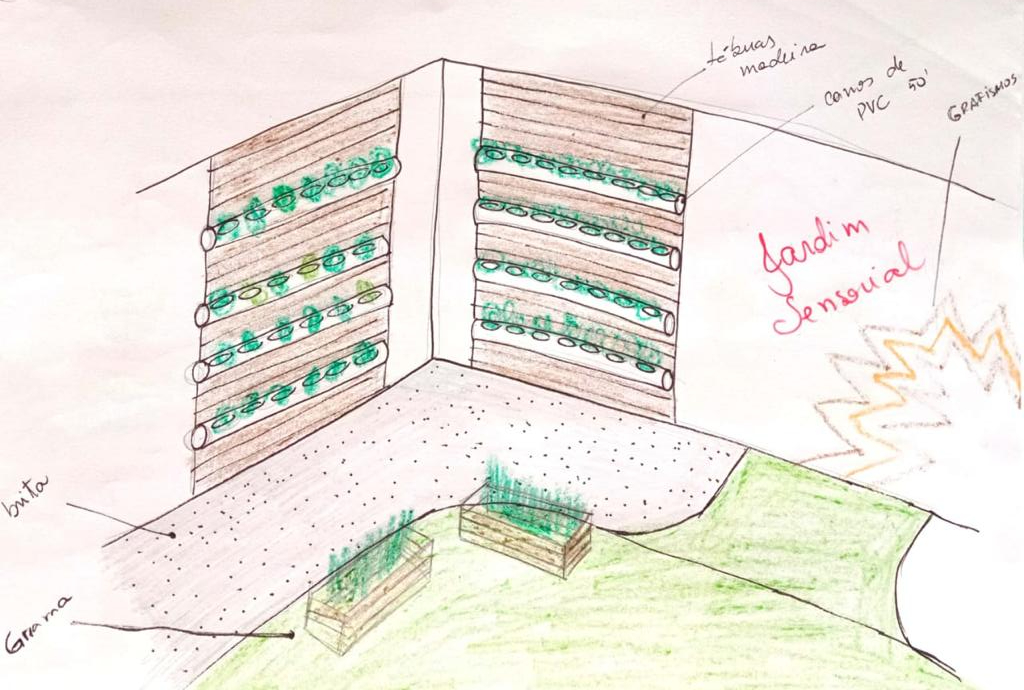 tábuas
madeira
canos de
PVC 50'
GRAFISMOS
Jardim
Sensorial
brita
Grama